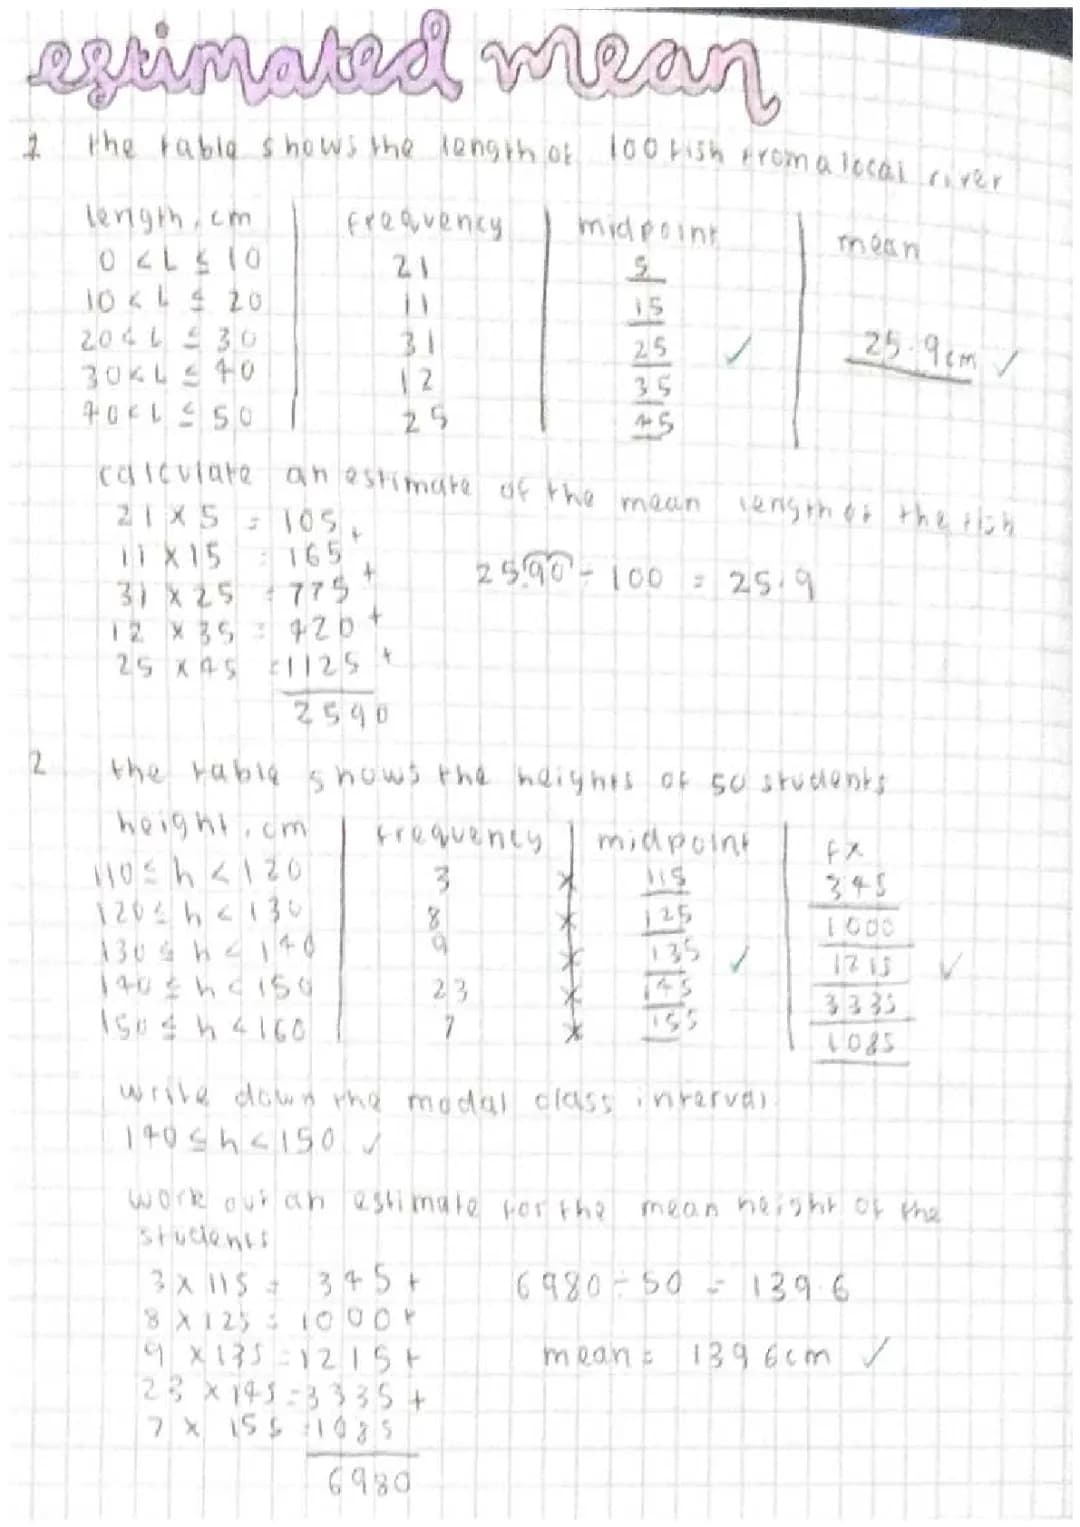 estimated mean
1 the table shows the length of 100 fish from a local river
length, cm frequency midpoint mean
0 < L ≤ 10 21 5
10 < L ≤ 20 11 15
20 < L ≤ 30 31 25 ✓ 25.9cm ✓
30 < L ≤ 40 12 35
40 < L ≤ 50 25 45
calculate an estimate of the mean length of the fish
21 x 5 = 105 +
11 x 15 = 165 +
31 x 25 = 775 + 25.90 ÷ 100 = 25.9
12 x 35 = 420 +
25 x 45 = 1125
2590
2 the table shows the heights of 50 students
height, cm frequency midpoint fx
110 ≤ h < 120 3 x 115 345
120 ≤ h < 130 8 x 125 1000
130 ≤ h < 140 9 x 135 ✓ 1215 ✓
140 ≤ h < 150 23 x 145 3335
150 ≤ h < 160 7 x 155 1085
write down the modal class interval
140 ≤ h < 150 ✓
work out an estimate for the mean height of the
students
3 x 115 = 345 + 6980 ÷ 50 = 139.6
8 x 125 = 1000 +
9 x 135 = 1215 + mean = 139.6cm ✓
23 x 145 = 3335 +
7 x 155 = 1085
6980